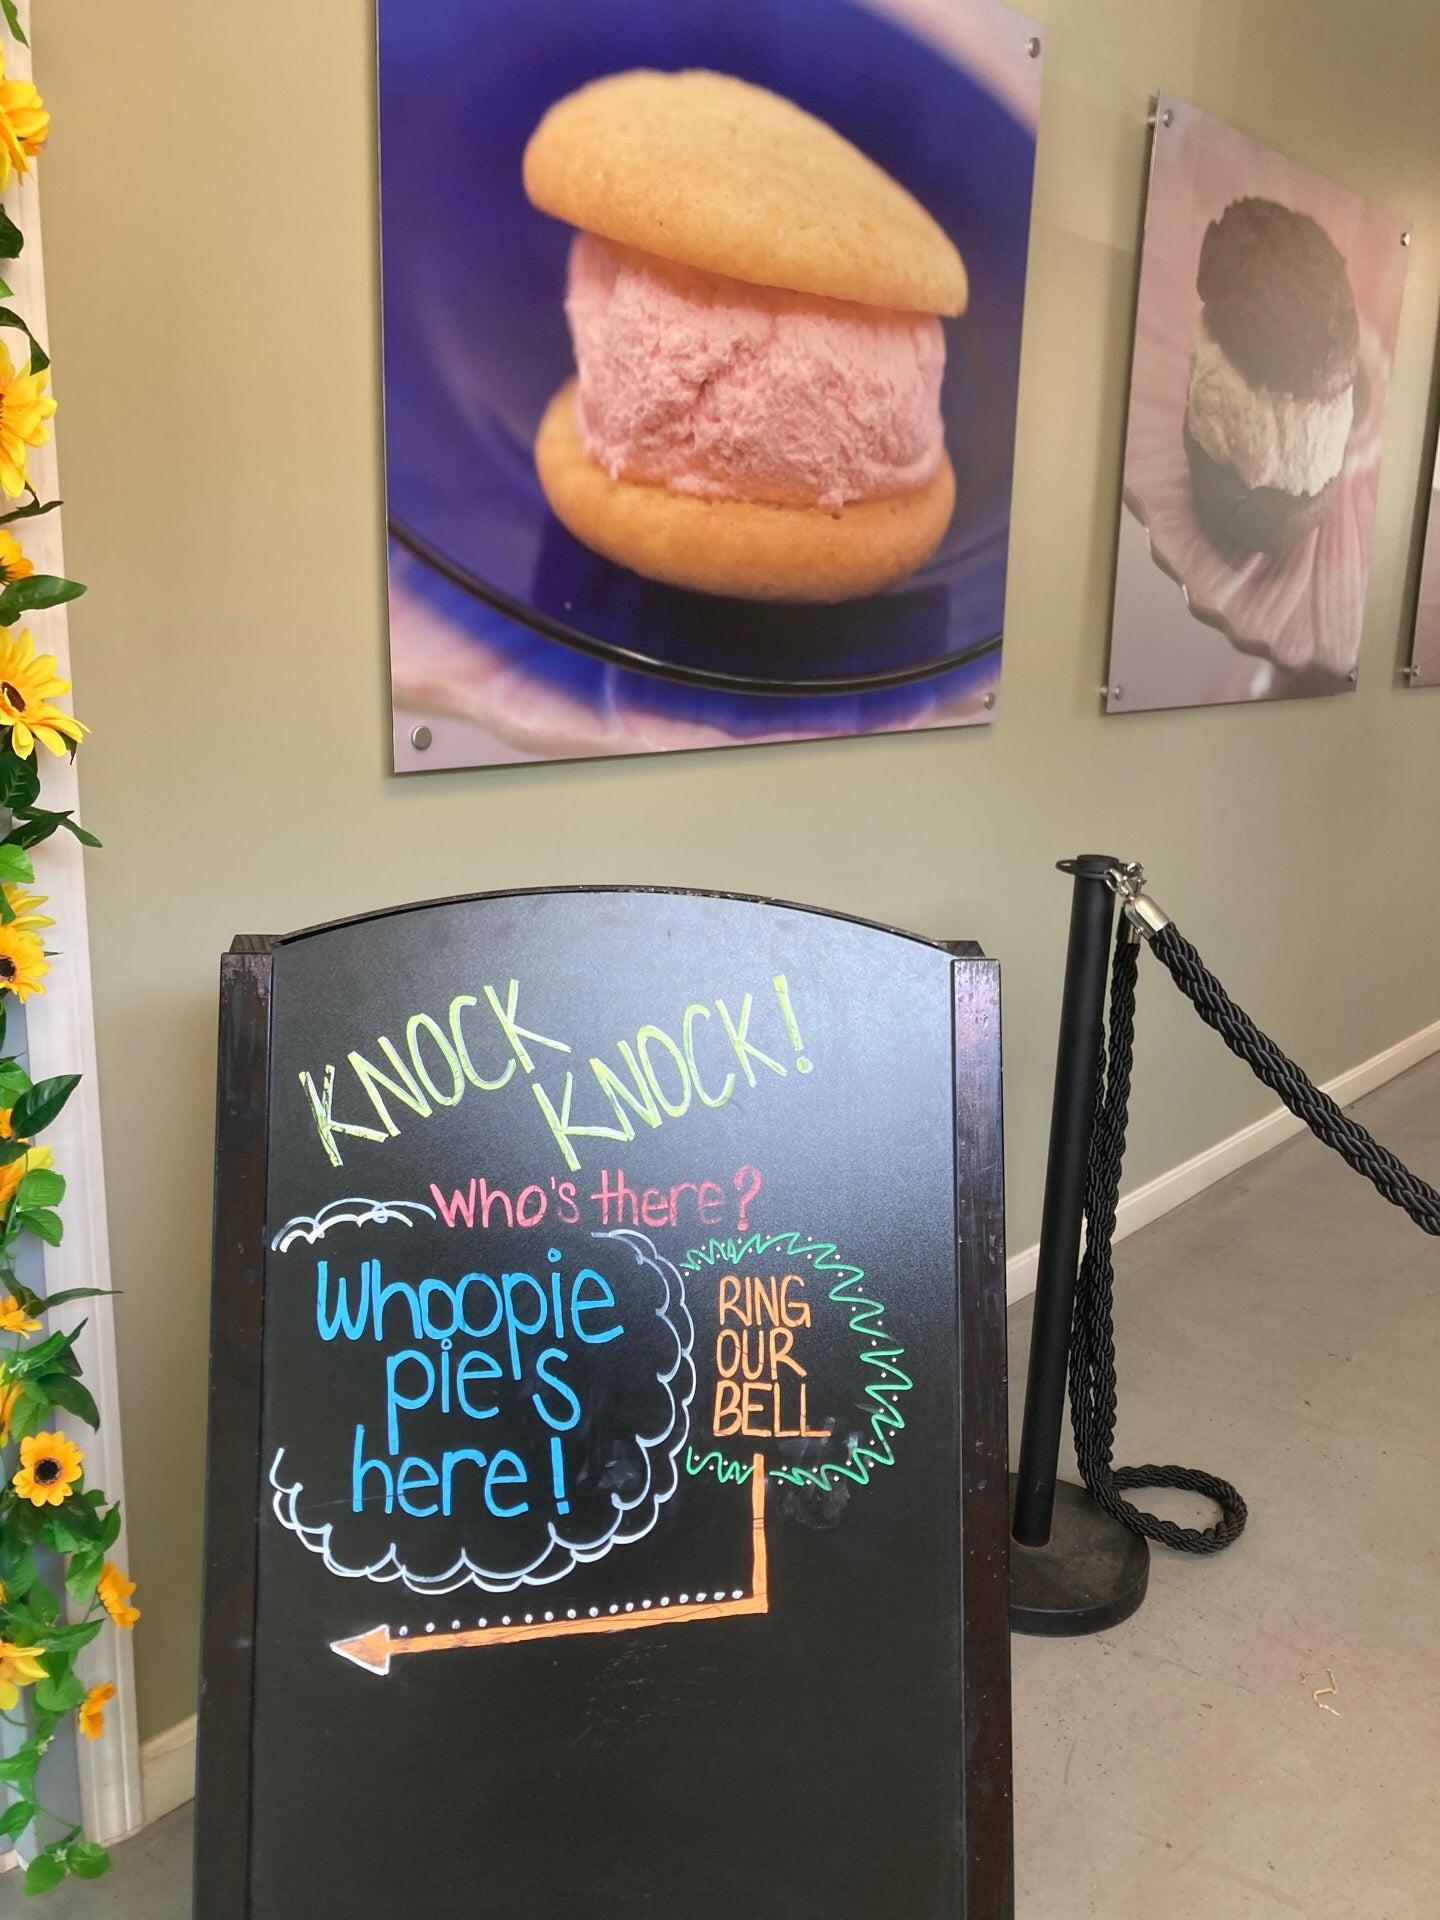 KNOCK
KNOCK!
Who's there?
Whoopie
pie's
here!
RING
OUR
BELL